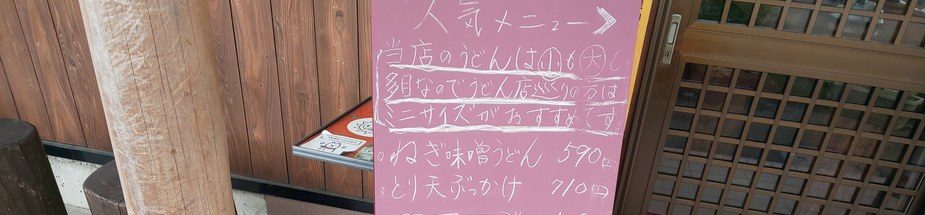 人気メニュー
当店のうどんは小も大も
多目なのでうどん店巡りの方は
ミニサイズがおすすめです
ねぎ味噌うどん 590円
とり天ぶっかけ 710円